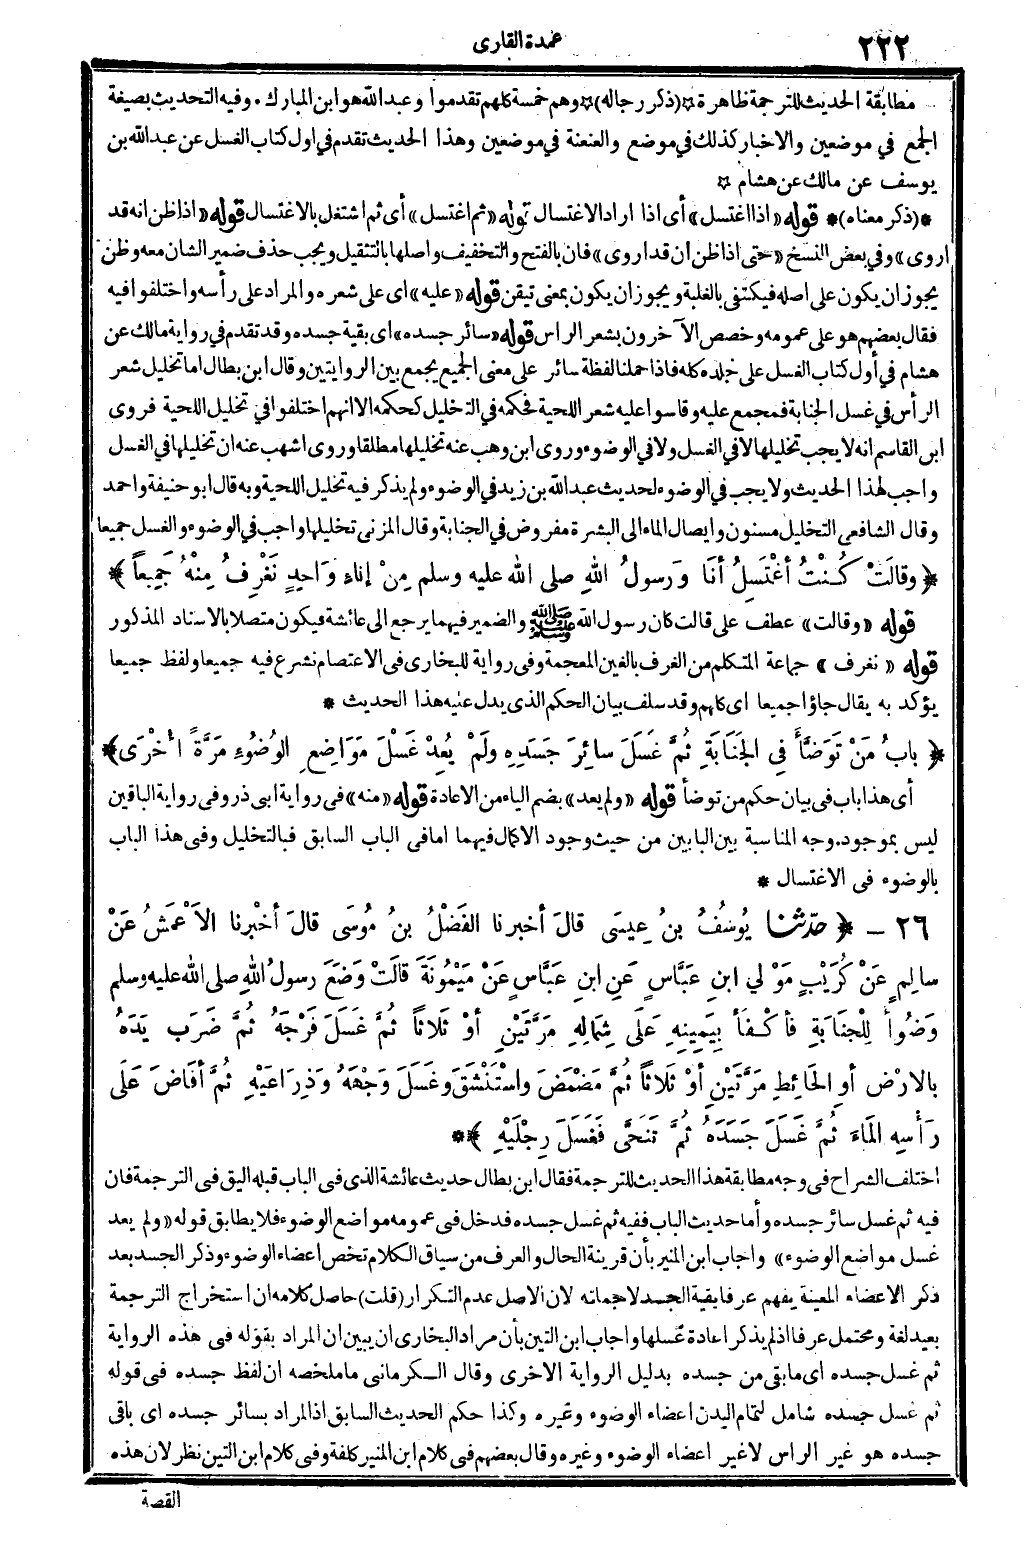 ٢٢٢
عمدة القارى
مطابقة الحديث للترجمة ظاهرة ✩(ذكر رجاله)✩ وهم خمسة كلهم تقدموا وعبدالله هو ابن المبارك . وفيه التحديث بصيغة
الجمع في موضعين والاخبار كذلك في موضع والعنعنة في موضعين وهذا الحديث تقدم في اول كتاب الغسل عن عبدالله بن
يوسف عن مالك عن هشام ✩
*(ذكر معناه)* قوله «اذا اغتسل» أى اذا اراد الاغتسال قوله «ثم اغتسل» أى ثم اشتغل بالاغتسال قوله «اذا ظن انه قد
اروى» وفي بعض النسخ «حتى اذا ظن ان قد اروى» فان بالفتح والتخفيف واصلها بالتثقيل ويجب حذف ضمير الشان معه وظن
يجوز ان يكون على اصله فيكتفى بالغلبة ويجوز ان يكون بمعنى تيقن قوله «عليه» اى على شعره والمراد على رأسه واختلفوا فيه
فقال بعضهم هو على عمومه وخصص الآخرون بشعر الراس قوله «سائر جسده» اى بقية جسده وقد تقدم في رواية مالك عن
هشام في أول كتاب الغسل على جلده كله فاذا حملنا لفظة سائر على معنى الجميع يجمع بين الروايتين وقال ابن بطال اما تخليل شعر
الرأس في غسل الجنابة فمجمع عليه وقاسوا عليه شعر اللحية فحكمه في التخليل كحكمه الا انهم اختلفوا في تخليل اللحية فروى
ابن القاسم انه لا يجب تخليلها لا في الغسل ولا في الوضوء وروى ابن وهب عنه تخليلها مطلقا وروى اشهب عنه ان تخليلها في الغسل
واجب لهذا الحديث ولا يجب في الوضوء لحديث عبدالله بن زيد في الوضوء ولم يذكر فيه تخليل اللحية وبه قال ابو حنيفة واحمد
وقال الشافعى التخليل مسنون وايصال الماء الى البشرة مفروض في الجنابة وقال المزنى تخليلها واجب في الوضوء والغسل جميعا
﴿ وقالَتْ كُنْتُ أغْتَسِلُ أنَا وَرسولُ اللهِ صلى الله عليه وسلم مِنْ إناءٍ وَاحِدٍ نَغْرِفُ مِنْهُ جَمِيعاً ﴾
قوله «وقالت» عطف على قالت كان رسول الله ﷺ والضمير فيهما يرجع الى عائشة فيكون متصلا بالاسناد المذكور
قوله « نغرف » جماعة المتكلم من الغرف بالغين المعجمة وفى رواية للبخارى فى الاعتصام نشرع فيه جميعا ولفظ جميعا
يؤكد به يقال جاؤا جميعا اى كلهم وقد سلف بيان الحكم الذى يدل عليه هذا الحديث *
﴿ بابُ مَنْ تَوَضَّأَ فِي الجَنَابَةِ ثُمَّ غَسَلَ سائِرَ جَسَدِهِ ولَمْ يُعِدْ غَسْلَ مَوَاضِعِ الوُضُوءِ مَرَّةً أخْرَى ﴾
أى هذا باب فى بيان حكم من توضأ قوله «ولم يعد» بضم الياء من الاعادة قوله «منه» فى رواية ابى ذر وفى رواية الباقين
ليس بموجود . وجه المناسبة بين البابين من حيث وجود الاكمال فيهما اما فى الباب السابق فبالتخليل وفى هذا الباب
بالوضوء فى الاغتسال *
٢٦ - ﴿ حدّثنا يُوسُفُ بنُ عِيسَى قالَ أخبرنا الفَضْلُ بنُ مُوسَى قالَ أخْبرنا الأَعْمَشُ عَنْ
سالِمٍ عَنْ كُرَيْبٍ مَوْلي ابنِ عَبَّاسٍ عَنِ ابنِ عَبَّاسٍ عَنْ مَيْمُونَةَ قالَتْ وَضَعَ رسولُ اللهِ صلى الله عليه وسلم
وَضُوأً لِلْجَنَابَةِ فَأَكْفَأَ بِيَمِينِهِ عَلَى شِمَالِهِ مَرَّتَيْنِ أوْ ثَلاثاً ثُمَّ غَسَلَ فَرْجَهُ ثُمَّ ضَرَبَ يَدَهُ
بالأرْضِ أوِ الحَائِطِ مَرَّتَيْنِ أوْ ثَلاثاً ثُمَّ مَضْمَضَ واسْتَنْشَقَ وغَسَلَ وَجْهَهُ وَذِرَاعَيْهِ ثُمَّ أفَاضَ عَلَى
رَأْسِهِ المَاءَ ثُمَّ غَسَلَ جَسَدَهُ ثُمَّ تَنَحَّى فَغَسَلَ رِجْلَيْهِ ﴾ **
اختلف الشراح فى وجه مطابقة هذا الحديث للترجمة فقال ابن بطال حديث عائشة الذى فى الباب قبله اليق فى الترجمة فان
فيه ثم غسل سائر جسده وأما حديث الباب ففيه ثم غسل جسده فدخل فى عمومه مواضع الوضوء فلا يطابق قوله «ولم يعد
غسل مواضع الوضوء» واجاب ابن المنير بأن قرينة الحال والعرف من سياق الكلام تخص اعضاء الوضوء وذكر الجسد بعد
ذكر الاعضاء المعينة يفهم عرفا بقية الجسد لا جملته لان الاصل عدم التكرار (قلت) حاصل كلامه ان استخراج الترجمة
بعيد لغة ومحتمل عرفا اذ لم يذكر اعادة غسلها واجاب ابن التين بأن مراد البخارى ان يبين ان المراد بقوله فى هذه الرواية
ثم غسل جسده اى ما بقى من جسده بدليل الرواية الاخرى وقال الكرمانى ما ملخصه ان لفظ جسده فى قوله
ثم غسل جسده شامل لتمام البدن اعضاء الوضوء وغيره وكذا حكم الحديث السابق اذ المراد بسائر جسده اى باقى
جسده هو غير الراس لا غير اعضاء الوضوء وغيره وقال بعضهم فى كلام ابن المنير كلفة وفى كلام ابن التين نظر لان هذه
القصة